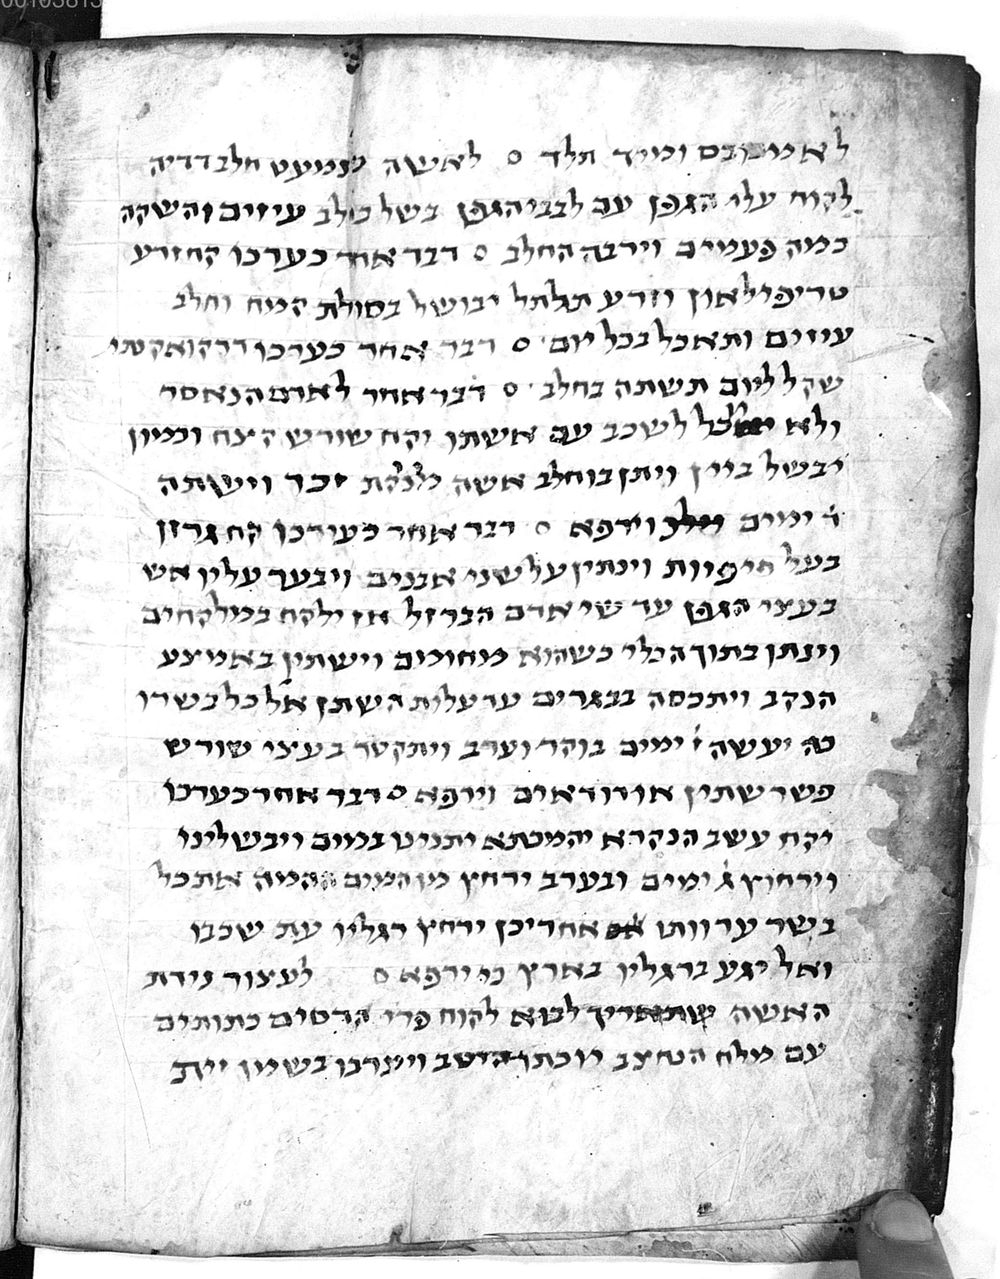 ומיד תלד ס לאשה חלב דדיה
לקוח עלי הגפן עם לבבי הגפן בשל חלב עיזים והשקה
כמה פעמים וירבה החלב ס דבר אחר כערכו קח זרע
וזרע תלתל יבושל בסולת קמח וחלב
עיזים ותאכל בכל יום ס דבר אחר כערכו
שקל ליום תשתה בחלב ס דבר אחר לאדם הנאסר
ולא לשכב עם אשתו יקח שורש וכמון
יבשל ביין ויתן בו חלב אשה זכר וישתה
ז ימים וירפא ס דבר אחר כעירכו קח גרזן
בעל פיפיות וינתין על שני אבנים ויבער עליו אש
בעצי הגפן עד שיאדם הברזל אז ילקח במלקחים
וינתן בתוך הכלי כשהוא וישתין באמצע
הנקב ויתכסה בבגדים עד עלות השתן אל כל בשרו
כה יעשה ז ימים בוקר וערב ויתקטר בעצי שורש
פשר שתין או דודאים וירפא ס דבר אחר כערכו
יקח עשב הנקרא במים ויבשלינו
וירחוץ ג ימים ובערב ירחץ מן המים ההמה את כל
בשר ערוותו אחרי כן ירחץ רגליו עת שכבו
ואל יגע ברגליו בארץ כי ירפא ס לעצור נידת
האשה שתאריך לבוא לקוח פרי הדסים כתותים
עם מלח היטב ויערבו בשמן